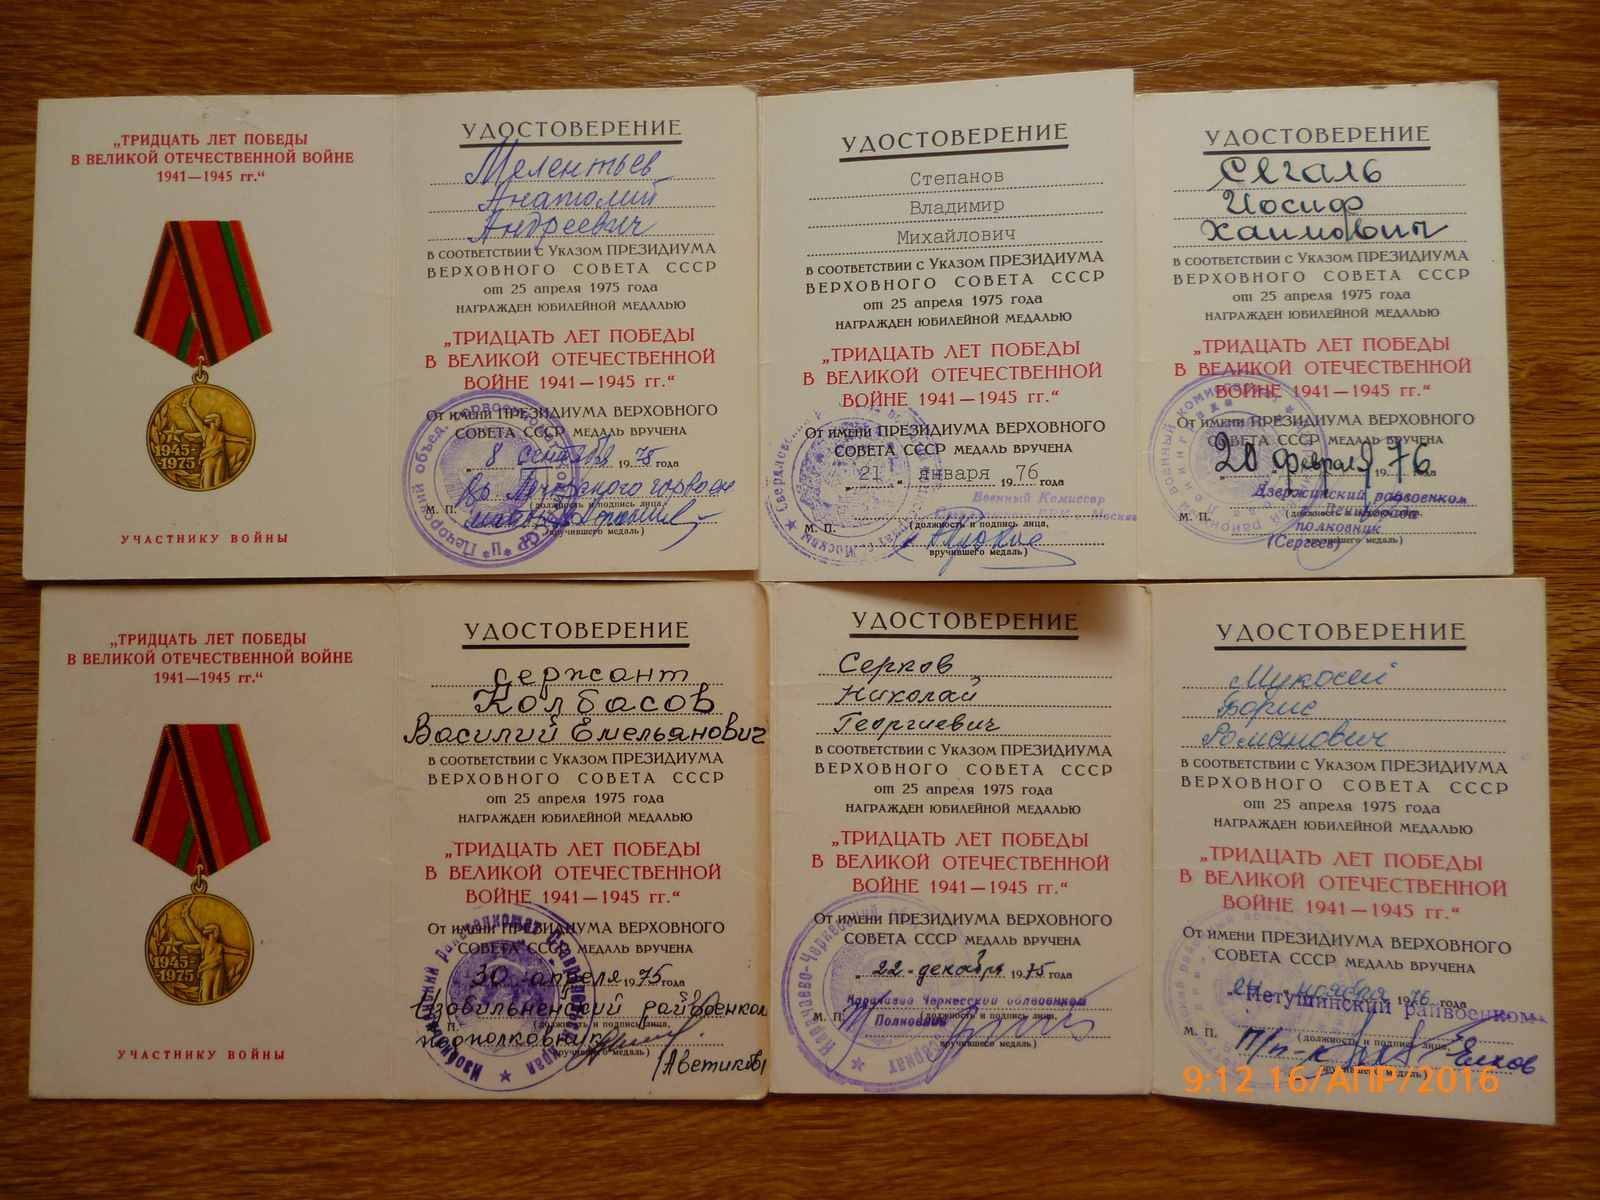 „ТРИДЦАТЬ ЛЕТ ПОБЕДЫ
В ВЕЛИКОЙ ОТЕЧЕСТВЕННОЙ ВОЙНЕ
1941—1945 гг.“
1945-
1975
УЧАСТНИКУ ВОЙНЫ
УДОСТОВЕРЕНИЕ
Мелентьев
Анатолий
Андреевич
в соответствии с Указом ПРЕЗИДИУМА
ВЕРХОВНОГО СОВЕТА СССР
от 25 апреля 1975 года
НАГРАЖДЕН ЮБИЛЕЙНОЙ МЕДАЛЬЮ
„ТРИДЦАТЬ ЛЕТ ПОБЕДЫ
В ВЕЛИКОЙ ОТЕЧЕСТВЕННОЙ
ВОЙНЕ 1941—1945 гг.“
От имени ПРЕЗИДИУМА ВЕРХОВНОГО
СОВЕТА СССР МЕДАЛЬ ВРУЧЕНА
„8 сентября 1975 года
Печорского
М. П. (должность и подпись лица,
вручившего медаль)
УДОСТОВЕРЕНИЕ
Степанов
Владимир
Михайлович
в соответствии с Указом ПРЕЗИДИУМА
ВЕРХОВНОГО СОВЕТА СССР
от 25 апреля 1975 года
НАГРАЖДЕН ЮБИЛЕЙНОЙ МЕДАЛЬЮ
„ТРИДЦАТЬ ЛЕТ ПОБЕДЫ
В ВЕЛИКОЙ ОТЕЧЕСТВЕННОЙ
ВОЙНЕ 1941—1945 гг.“
От имени ПРЕЗИДИУМА ВЕРХОВНОГО
СОВЕТА СССР МЕДАЛЬ ВРУЧЕНА
„21“ января 1976 года
Военный Комиссар
М. П. (должность и подпись лица,
вручившего медаль)
УДОСТОВЕРЕНИЕ
Сегаль
Иосиф
Хаимович
в соответствии с Указом ПРЕЗИДИУМА
ВЕРХОВНОГО СОВЕТА СССР
от 25 апреля 1975 года
НАГРАЖДЕН ЮБИЛЕЙНОЙ МЕДАЛЬЮ
„ТРИДЦАТЬ ЛЕТ ПОБЕДЫ
В ВЕЛИКОЙ ОТЕЧЕСТВЕННОЙ
ВОЙНЕ 1941—1945 гг.“
От имени ПРЕЗИДИУМА ВЕРХОВНОГО
СОВЕТА СССР МЕДАЛЬ ВРУЧЕНА
20 февраля 1976 года
Дзержинский райвоенком
Ленинграда
М. П. (должность и подпись лица,
полковник
(Сергеев) вручившего медаль)
„ТРИДЦАТЬ ЛЕТ ПОБЕДЫ
В ВЕЛИКОЙ ОТЕЧЕСТВЕННОЙ ВОЙНЕ
1941—1945 гг.“
1945-
1975
УЧАСТНИКУ ВОЙНЫ
УДОСТОВЕРЕНИЕ
сержант
Колбасов
Василий Емельянович
в соответствии с Указом ПРЕЗИДИУМА
ВЕРХОВНОГО СОВЕТА СССР
от 25 апреля 1975 года
НАГРАЖДЕН ЮБИЛЕЙНОЙ МЕДАЛЬЮ
„ТРИДЦАТЬ ЛЕТ ПОБЕДЫ
В ВЕЛИКОЙ ОТЕЧЕСТВЕННОЙ
ВОЙНЕ 1941—1945 гг.“
От имени ПРЕЗИДИУМА ВЕРХОВНОГО
СОВЕТА СССР МЕДАЛЬ ВРУЧЕНА
30 апреля 1975 года
Изобильненский райвоенком
М. П. (должность и подпись лица,
подполковник
вручившего медаль)
УДОСТОВЕРЕНИЕ
Серков
Николай
Георгиевич
в соответствии с Указом ПРЕЗИДИУМА
ВЕРХОВНОГО СОВЕТА СССР
от 25 апреля 1975 года
НАГРАЖДЕН ЮБИЛЕЙНОЙ МЕДАЛЬЮ
„ТРИДЦАТЬ ЛЕТ ПОБЕДЫ
В ВЕЛИКОЙ ОТЕЧЕСТВЕННОЙ
ВОЙНЕ 1941—1945 гг.“
От имени ПРЕЗИДИУМА ВЕРХОВНОГО
СОВЕТА СССР МЕДАЛЬ ВРУЧЕНА
„22 декабря 1975 года
Карачаево Черкесский облвоенком
М. П. (должность и подпись лица,
Полковник
вручившего медаль)
УДОСТОВЕРЕНИЕ
Мукосей
Борис
Романович
в соответствии с Указом ПРЕЗИДИУМА
ВЕРХОВНОГО СОВЕТА СССР
от 25 апреля 1975 года
НАГРАЖДЕН ЮБИЛЕЙНОЙ МЕДАЛЬЮ
„ТРИДЦАТЬ ЛЕТ ПОБЕДЫ
В ВЕЛИКОЙ ОТЕЧЕСТВЕННОЙ
ВОЙНЕ 1941—1945 гг.“
От имени ПРЕЗИДИУМА ВЕРХОВНОГО
СОВЕТА СССР МЕДАЛЬ ВРУЧЕНА
ноября 1976 года
Петушинский райвоенком
М. П. (должность и подпись лица,
П/п-к
вручившего медаль)
9:12 16/АПР/2016